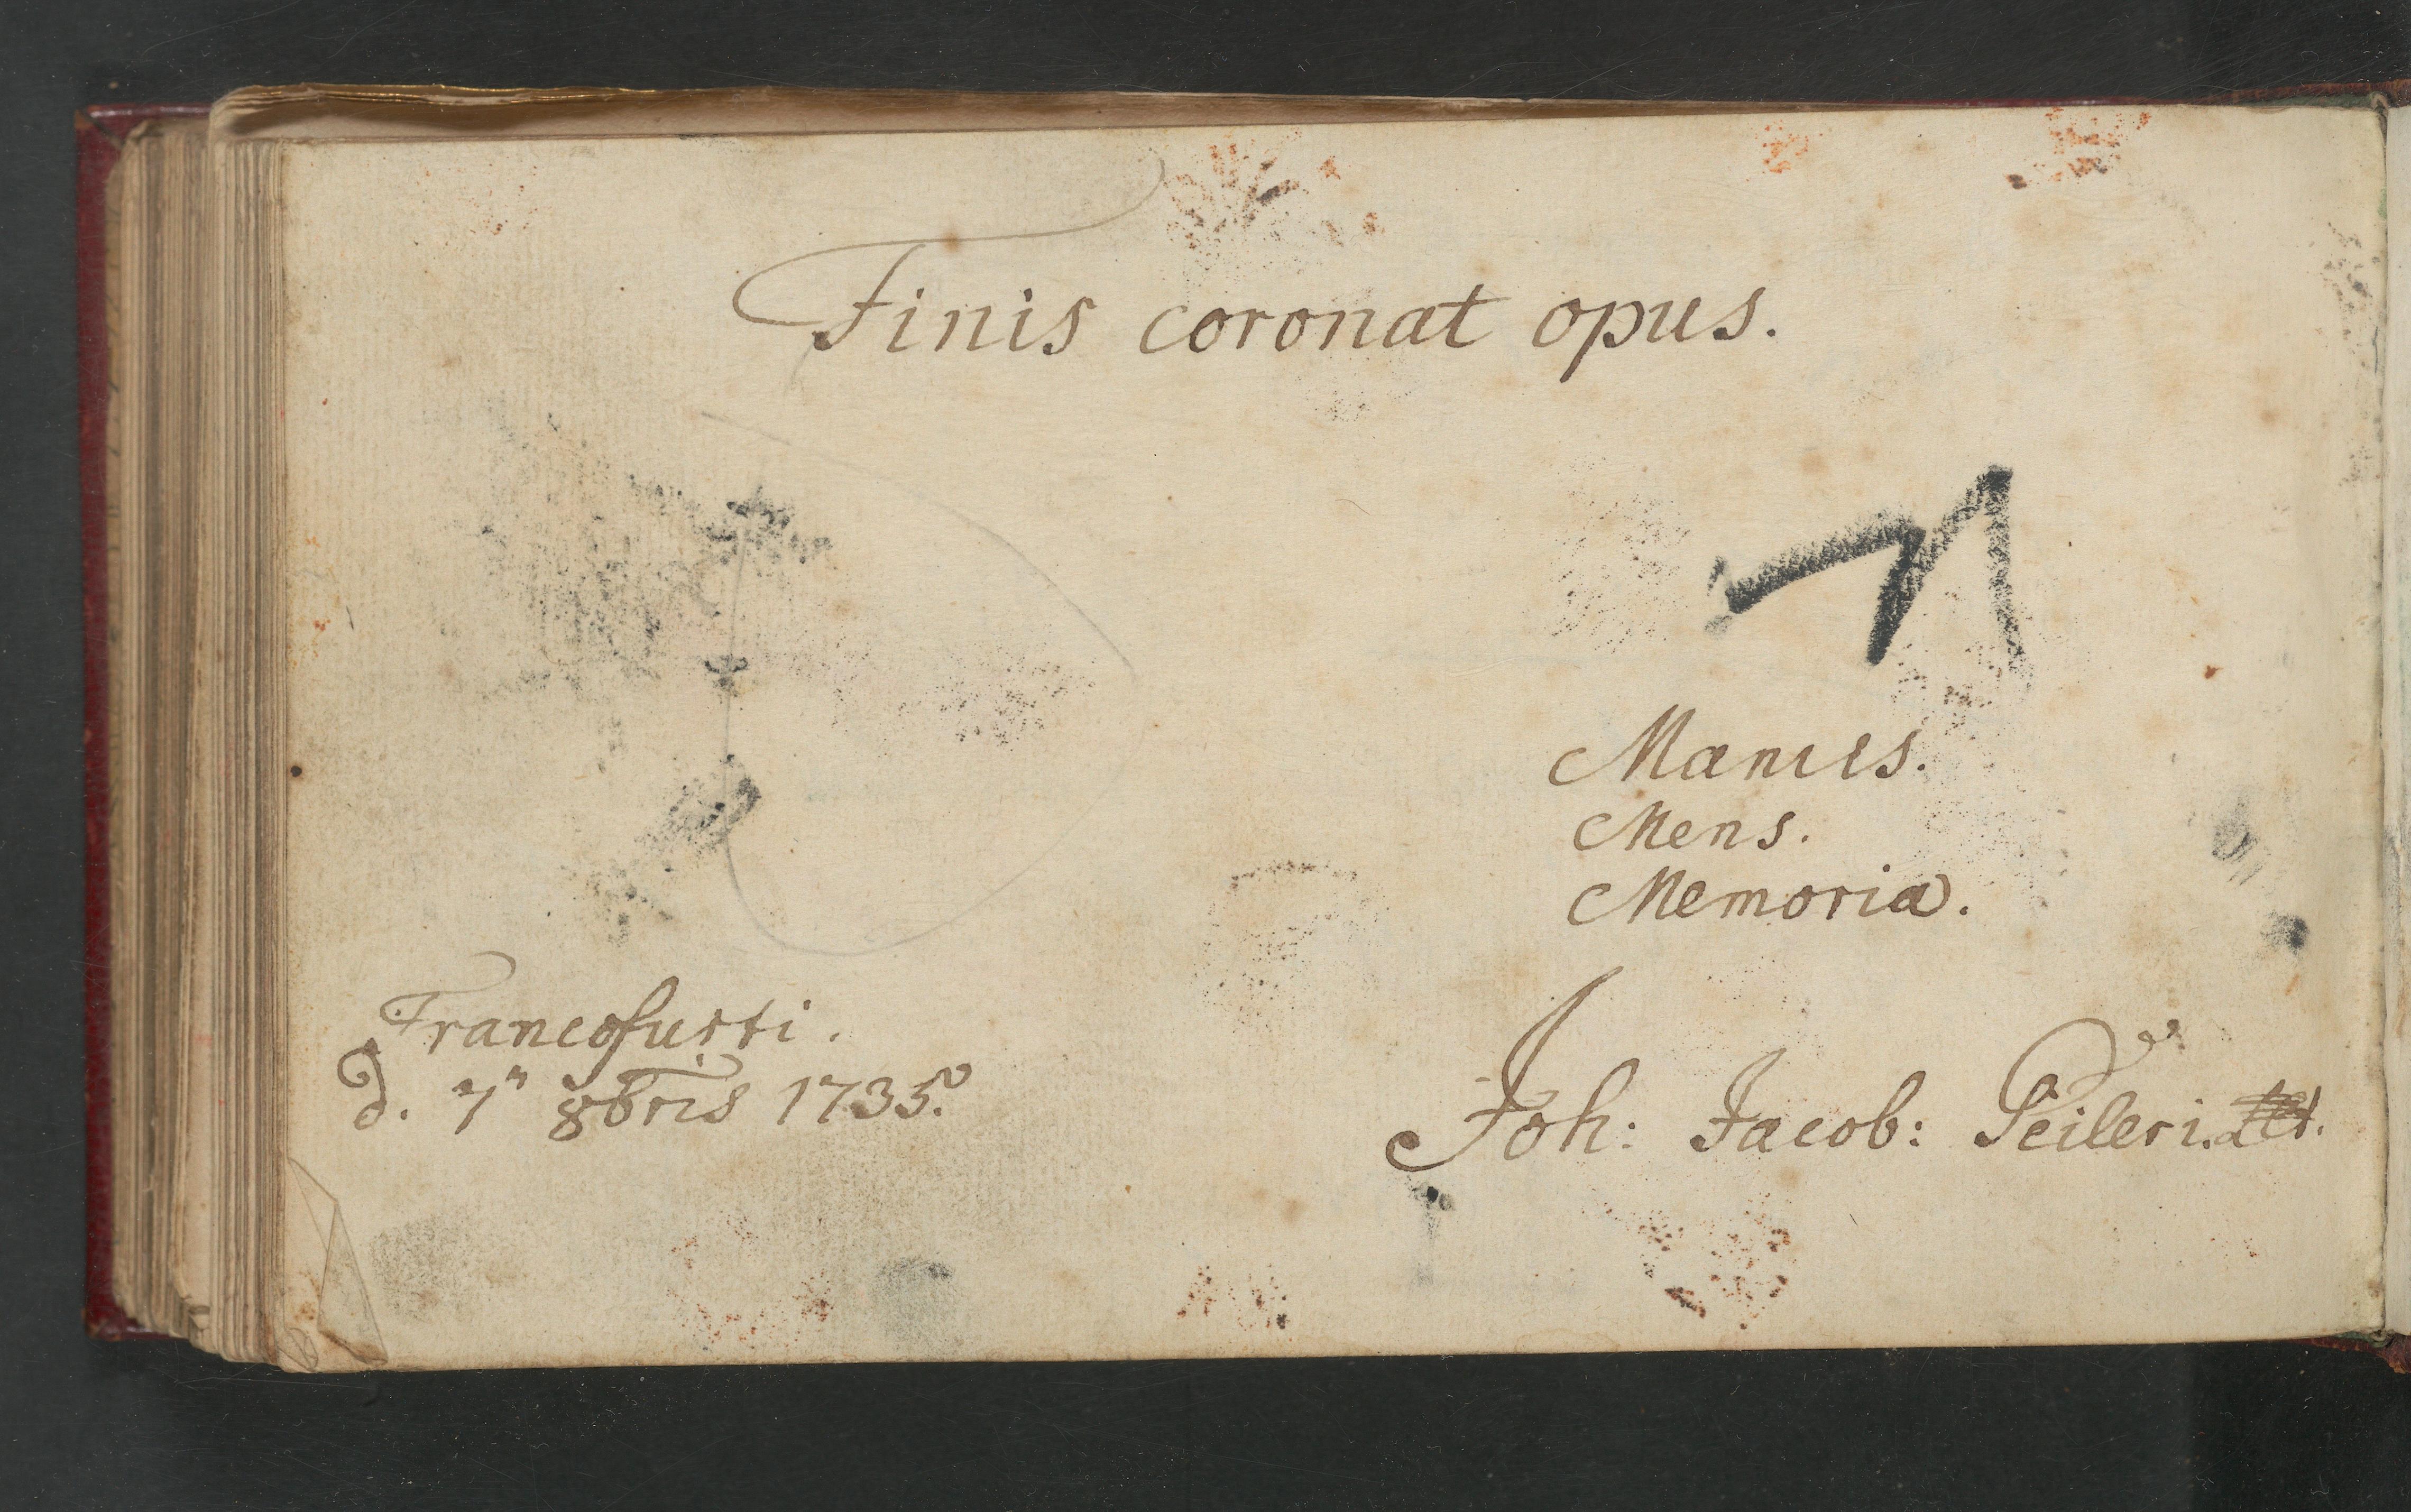 Finis coronat opus.
Manus.
Mens.
Memoria.
Francofurti.
d. 7" 8bris 1735.
Joh: Jacob: Peileri.